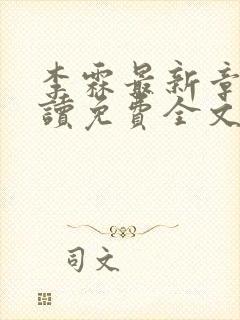 李霖最新章
讀免費全文
司文